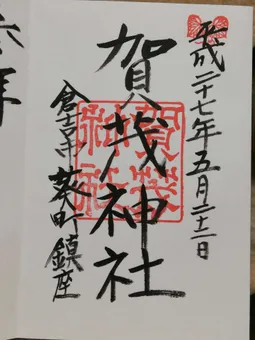 平成二十七年五月二十二日
賀茂神社
倉吉市葵町鎮座
賀茂神社